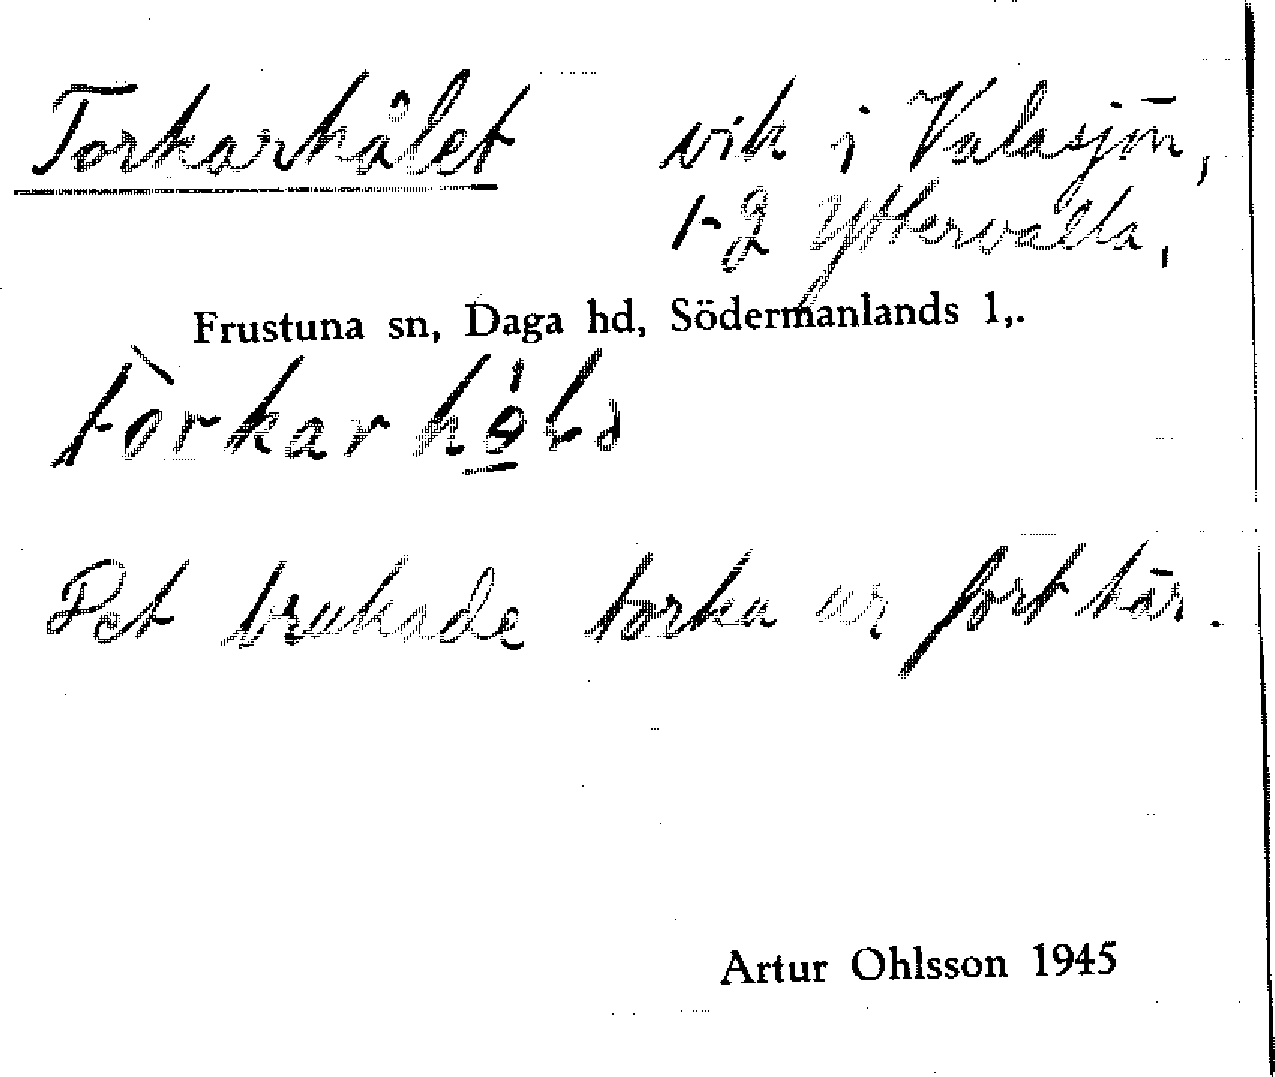 Torkarhålet vik i Valasjön,
1-2 Yttervalla,
Frustuna sn, Daga hd, Södermanlands l,.
tòrkarhó̱ḷə
Det brukade torka ur fort här.
Artur Ohlsson 1945